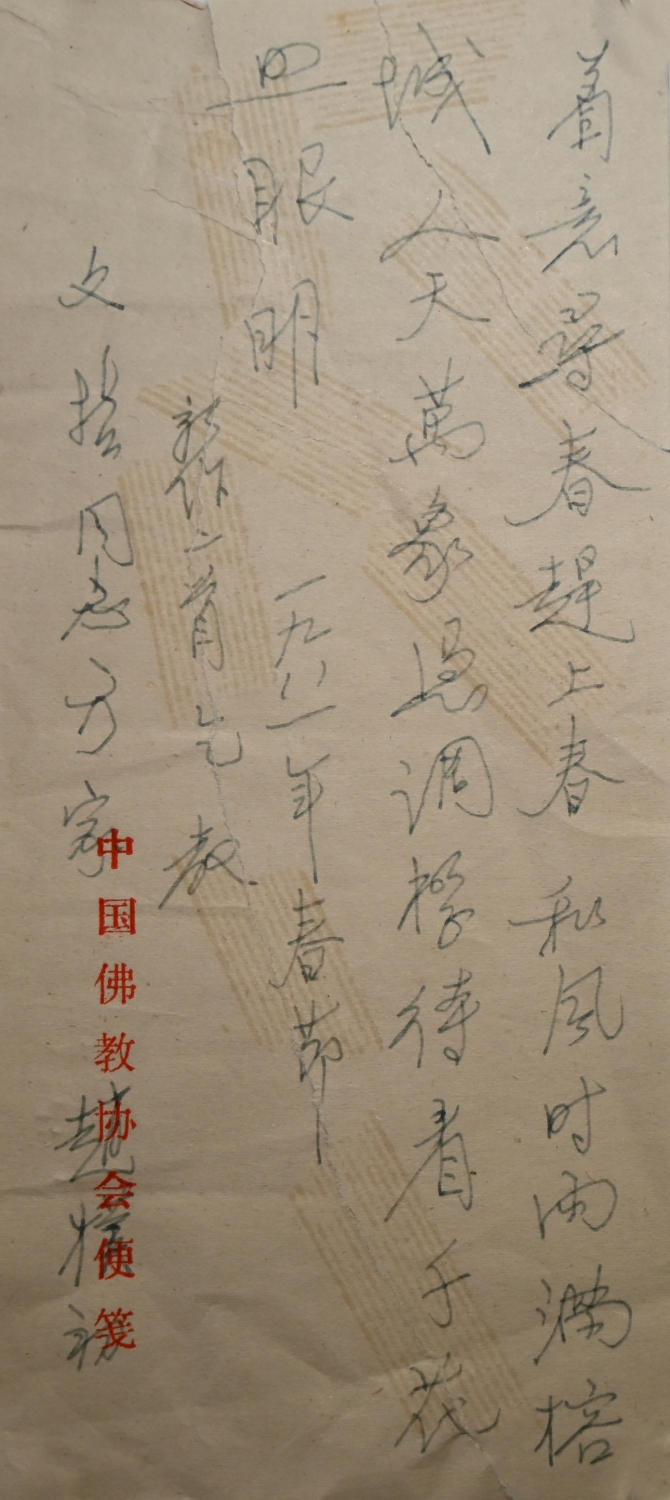 着意尋春趕上春 和风时雨满榕
城人天萬象調待看千花
照眼明
一九八一年春節
新作二首乞教
文同志方家
趙樸初
中国佛教协会便笺